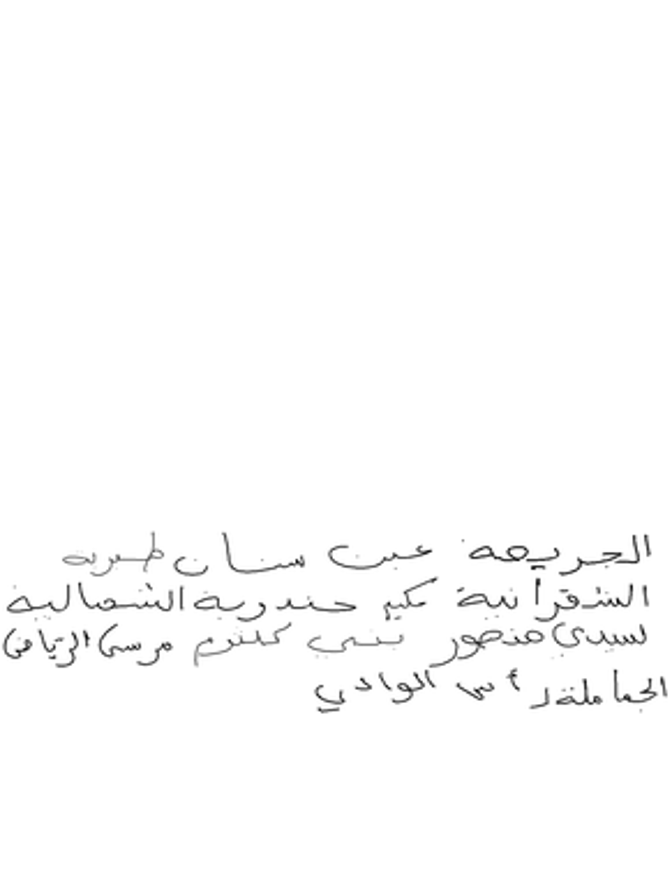 الجريصة عين سنان طبربة
الشقرانية جندوبة الشمالية
سيدي منصور بني كلثوم مرسى الرياض
الجماملة رأس الوادي